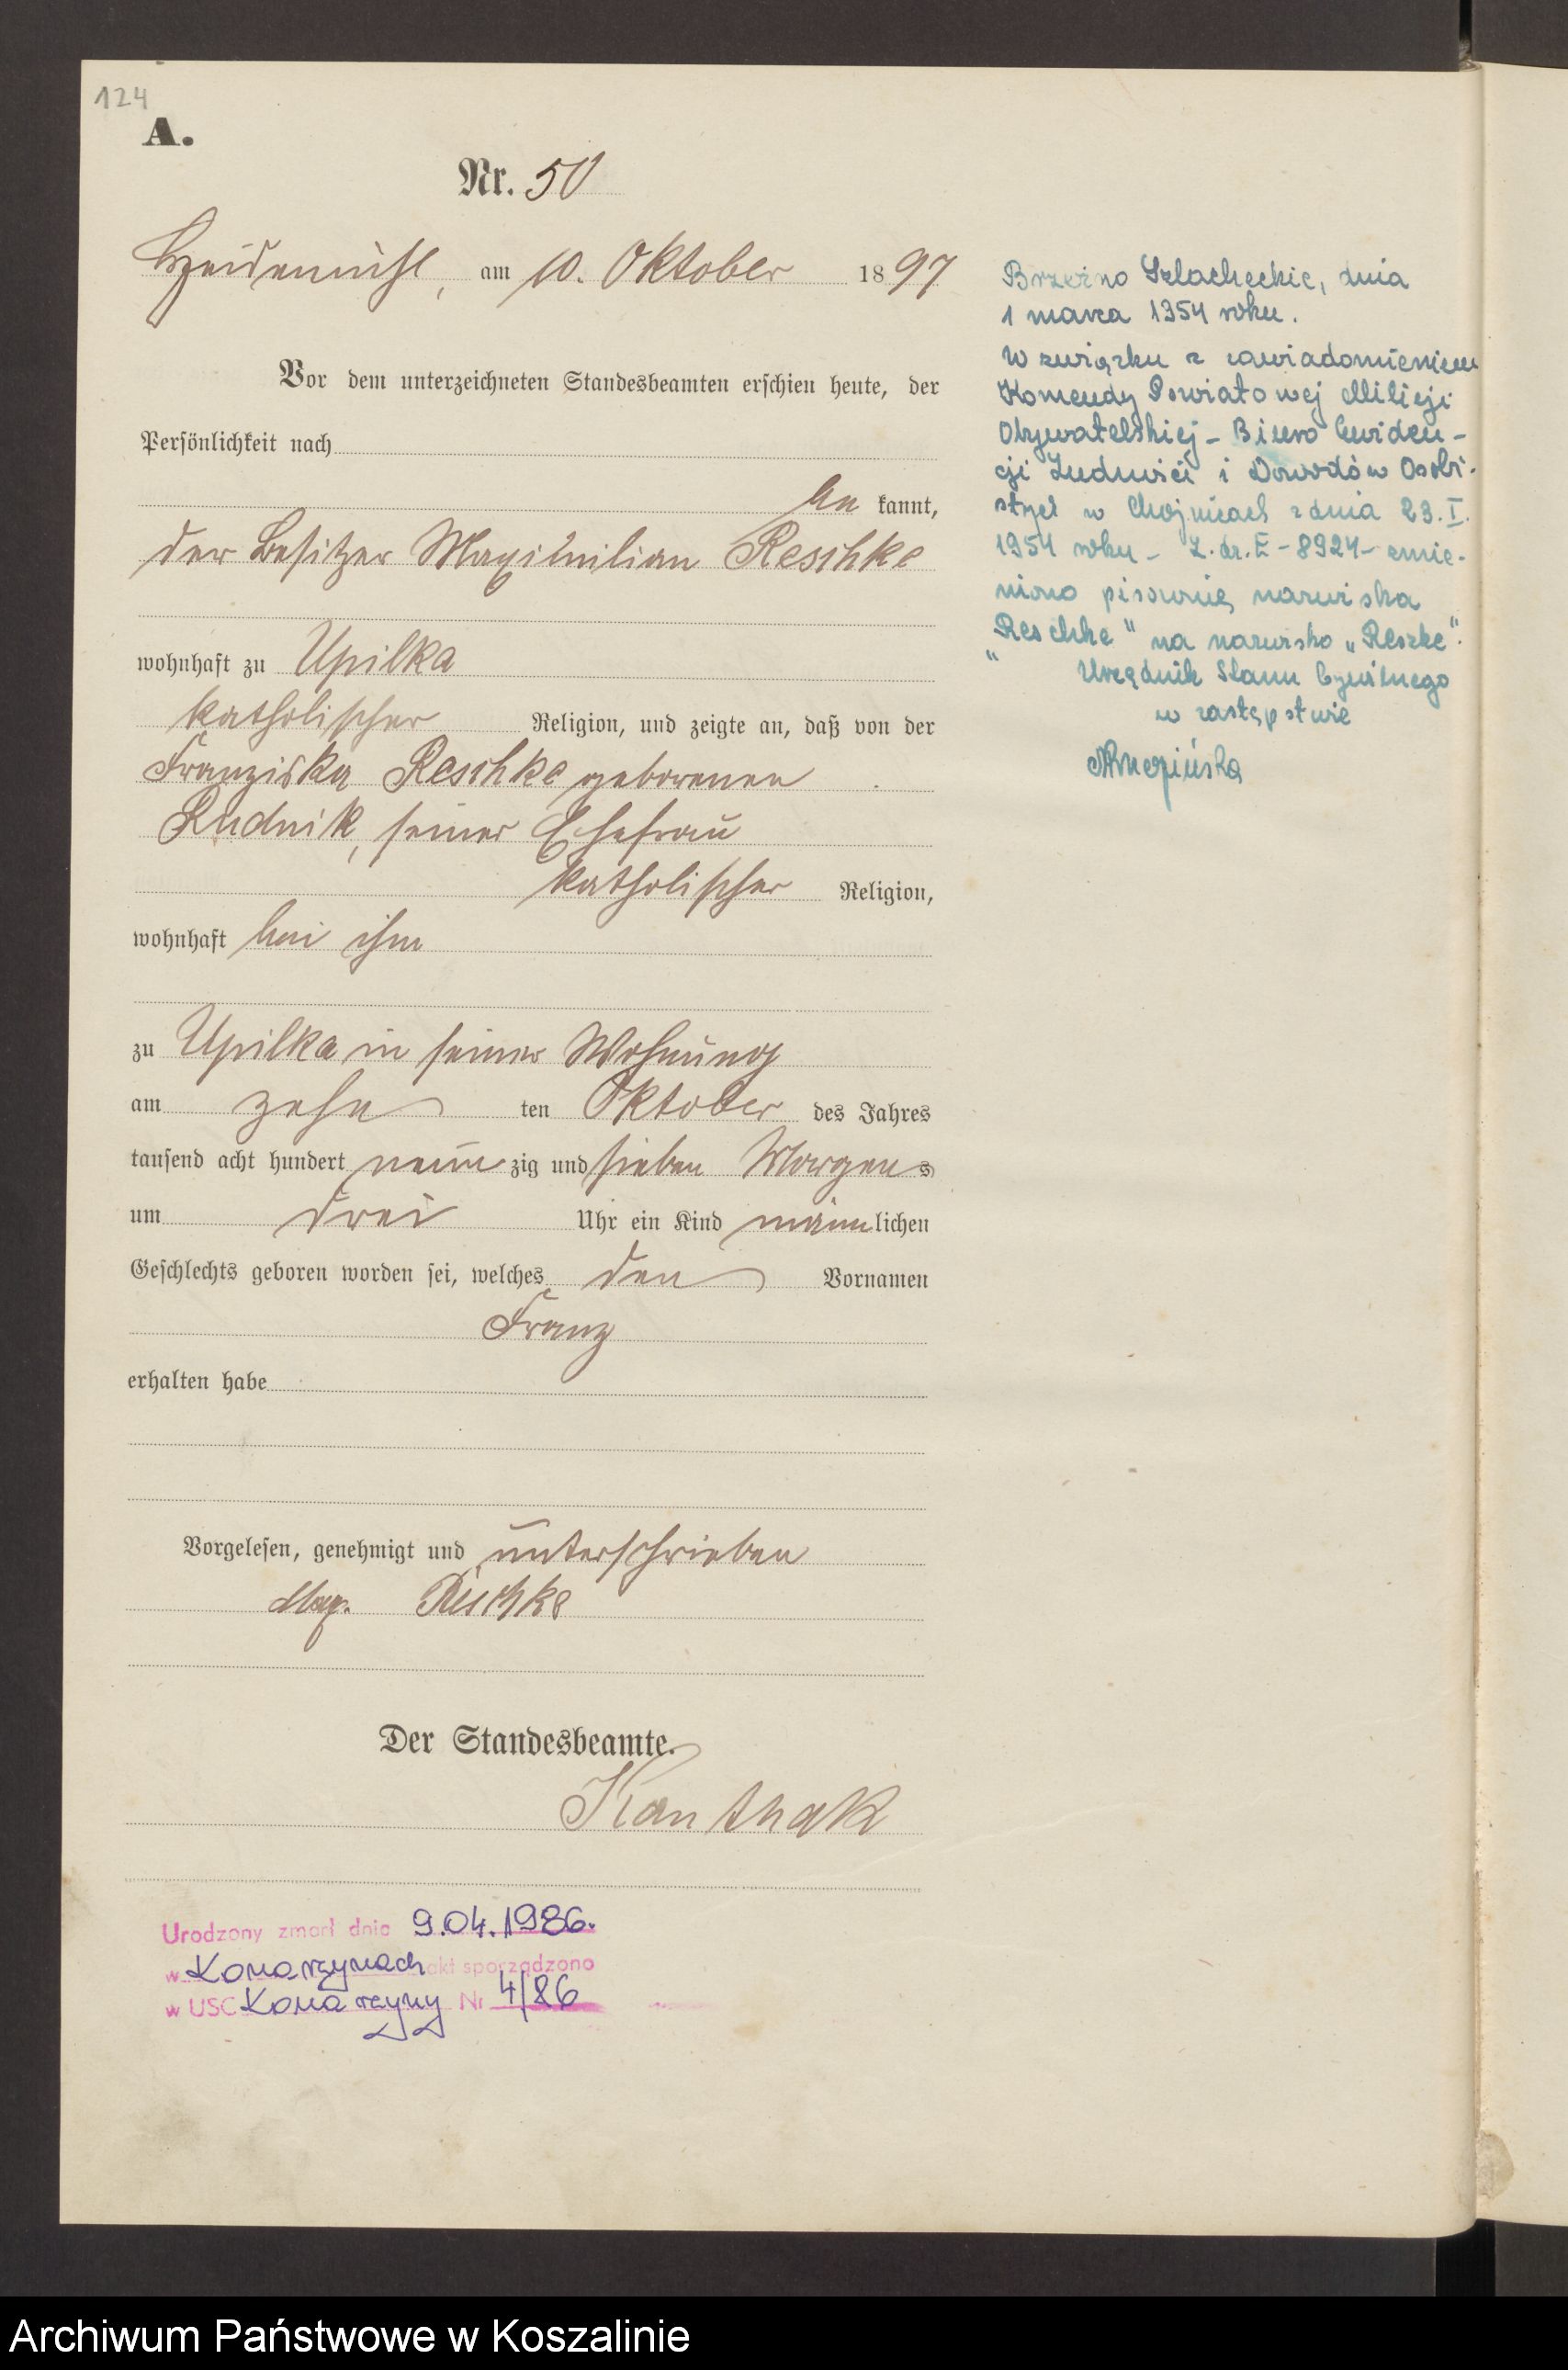 124
A.
Nr. 50
Heidemühl, am 10. Oktober 1897
Vor dem unterzeichneten Standesbeamten erschien heute, der
Persönlichkeit nach
be kannt,
der Besitzer Maximilian Reschke
wohnhaft zu Upilka
katholischer Religion, und zeigte an, daß von der
Franziska Reschke geborenen
Rudnik, seiner Ehefrau
katholischer Religion,
wohnhaft bei ihm
zu Upilka in seiner Wohnung
am zehn ten Oktober des Jahres
tausend acht hundert neun zig und sieben Morgens
um drei Uhr ein Kind männlichen
Geschlechts geboren worden sei, welches den Vornamen
Franz
erhalten habe
Vorgelesen, genehmigt und unterschrieben
Max. Reschke
Der Standesbeamte.
Kanthak
Urodzony zmarł dnia 9.04.1986.
w Konarzynach akt sporządzono
w USC Konarzyny Nr 4/86
Brzeźno Szlacheckie, dnia
1 marca 1954 roku.
W związku z zawiadomieniem
Komendy Powiatowej Milicji
Obywatelskiej - Biuro Ewiden-
cji Ludności i Dowodów Osobi-
stych w Chojnicach z dnia 23. I.
1954 roku - L. dz. E - 8924 - zmie-
niono pisownię nazwiska
"Reschke" na nazwisko „Reszke".
Urzędnik Stanu Cywilnego
w zastępstwie
Archiwum Państwowe w Koszalinie